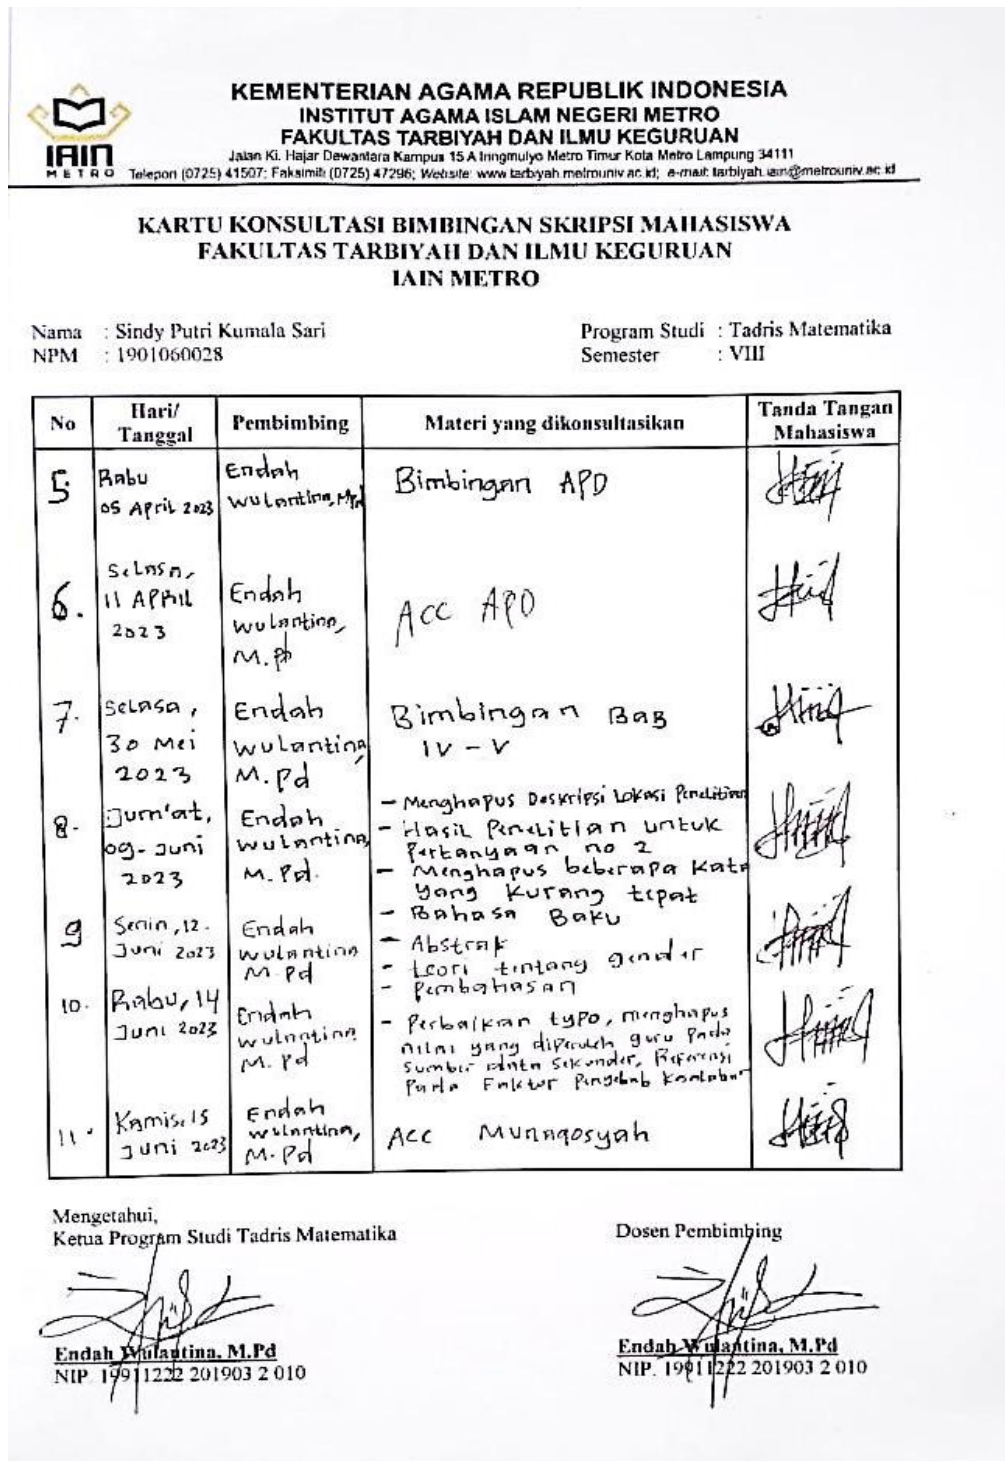 KEMENTERIAN AGAMA REPUBLIK INDONESIA
INSTITUT AGAMA ISLAM NEGERI METRO
FAKULTAS TARBIYAH DAN ILMU KEGURUAN
IAIN
METRO
Jalan Ki. Hajar Dewantara Kampus 15 A Iringmulyo Metro Timur Kota Metro Lampung 34111
Telepon (0725) 41507; Faksimili (0725) 47296; Website: www.tarbiyah.metrouniv.ac.id; e-mail: tarbiyah.iain@metrouniv.ac.id
KARTU KONSULTASI BIMBINGAN SKRIPSI MAHASISWA
FAKULTAS TARBIYAH DAN ILMU KEGURUAN
IAIN METRO
Nama : Sindy Putri Kumala Sari
NPM : 1901060028
Program Studi : Tadris Matematika
Semester : VIII
No
Hari/
Tanggal
Pembimbing
Materi yang dikonsultasikan
Tanda Tangan
Mahasiswa
5
Rabu
05 April 2023
Endah
Wulantina, M.Pd
Bimbingan APD
6.
Selasa,
11 APRIL
2023
Endah
Wulantina,
M.Pd
Acc APD
7.
Selasa,
30 Mei
2023
Endah
Wulantina,
M.Pd
Bimbingan BAB
IV - V
8.
Jum'at,
09-Juni
2023
Endah
Wulantina,
M.Pd.
- Menghapus Deskripsi Lokasi Penelitian
- Hasil Penelitian untuk
Pertanyaan no 2
- Menghapus beberapa Kata
yang Kurang tepat
- Bahasa Baku
9
Senin, 12.
Juni 2023
Endah
Wulantina
M.Pd
- Abstrak
- teori tentang gender
- Pembahasan
10.
Rabu, 14
Juni 2023
Endah
Wulantina
M.Pd
- Perbaikan typo, menghapus
nilai yang diperoleh guru Pada
Sumber data Sekunder, Referensi
Pada Faktor Penyebab
11.
Kamis, 15
Juni 2023
Endah
Wulantina,
M.Pd
Acc Munaqosyah
Mengetahui,
Ketua Program Studi Tadris Matematika
Endah Wulantina, M.Pd
NIP. 19911222 201903 2 010
Dosen Pembimbing
Endah Wulantina, M.Pd
NIP. 19911222 201903 2 010